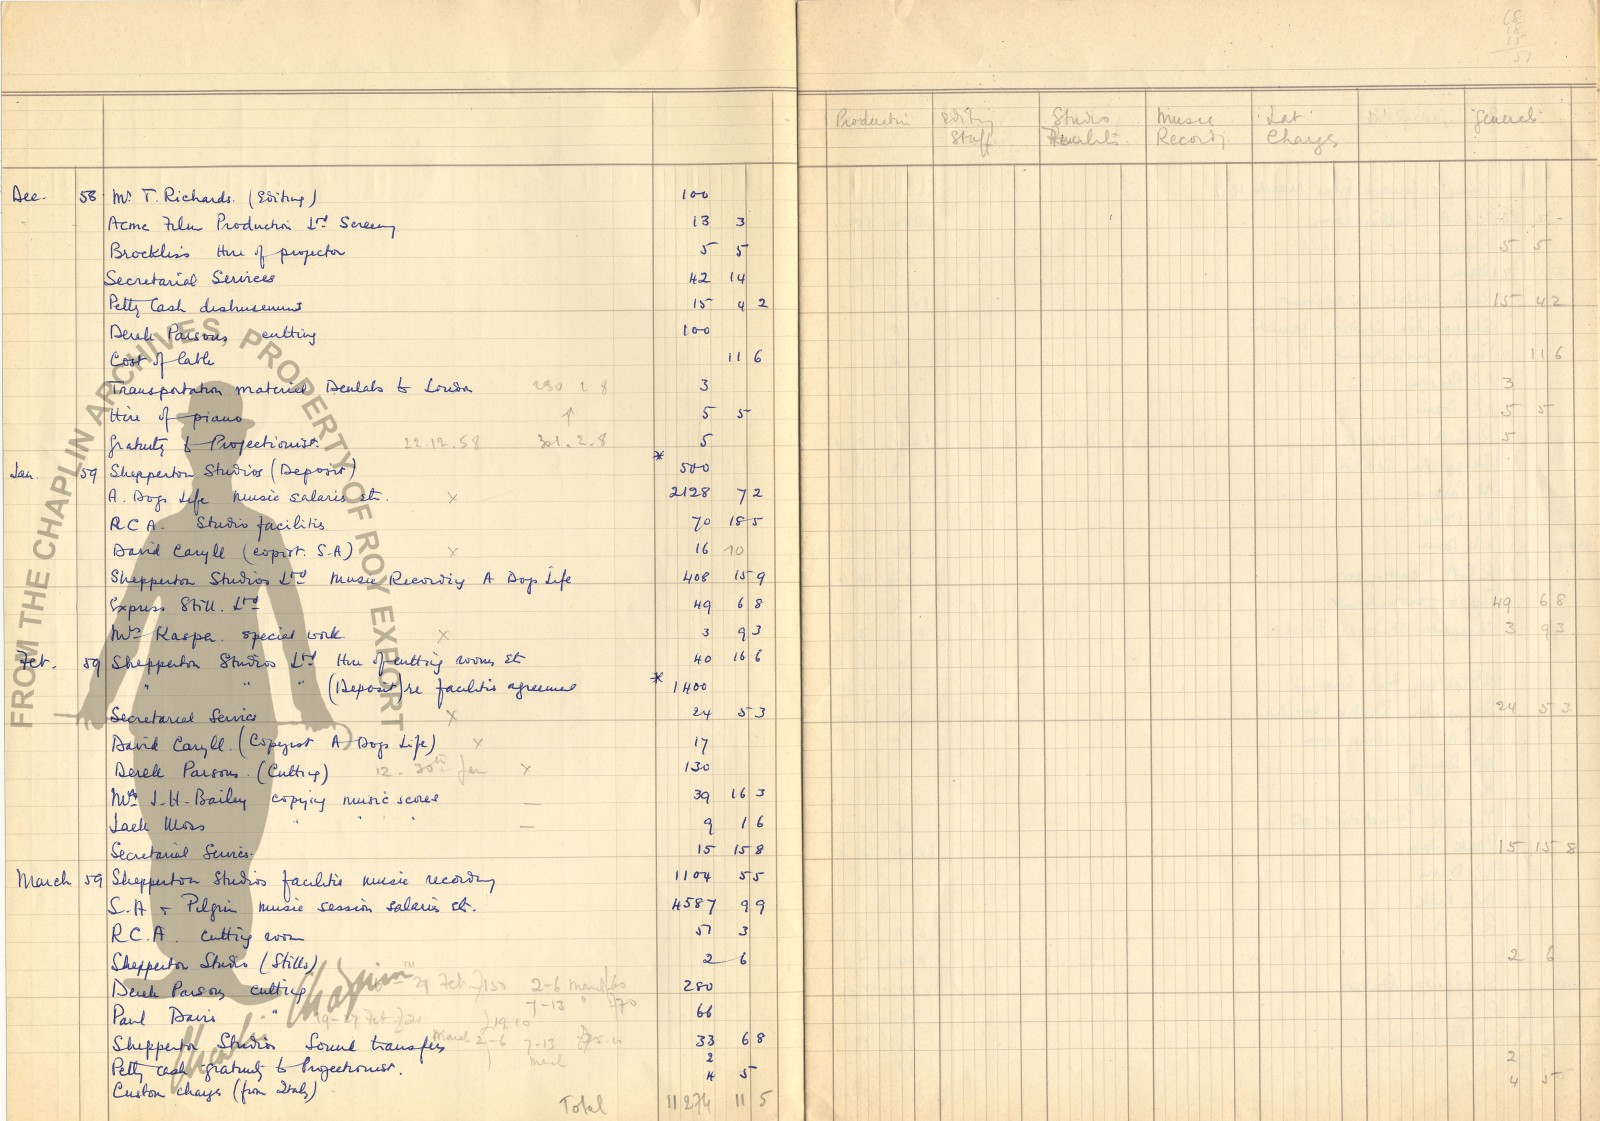 18
18
15
51
Production Editing Staff Studio Music Recording Lab Charges General
Dec. 58 Mr T. Richards. (Editing) 100
Acme Film Production Ltd Screening 13 3
Brockliss Hire of projector 5 5 5 5
Secretarial Services 42 14
Petty Cash disbursement 15 4 2 15 4 2
Derek Parsons cutting 100
Cost of cable 11 6 11 6
Transportation material Denlabs to London 230 2 8 3 3
Hire of piano ↑ 5 5 5 5
Gratuity to Projectionist. 22.12.58 301.2.8 5 5
Jan. 59 Shepperton Studios (Deposit) * 500
A. Dogs Life music salaries etc. x 2128 7 2
R C A. Studio facilities 70 18 5
David Caryll (copist. S.A) x 16 10
Shepperton Studios Ltd Music Recording A Dogs Life 408 15 9
Express Still. Ltd 49 6 8 49 6 8
Mrs Kasper. special work x 3 9 3 3 9 3
Feb. 59 Shepperton Studios Ltd Hire of cutting rooms etc 40 16 6
" " " (Deposit) re facilities agreement * 1400
Secretarial Services x 24 5 3 24 5 3
David Caryll. (Copyist A Dogs Life) x 17
Derek Parsons. (Cutting) 12 - 30th Jan x 130
J.H. Bailey copying music scores — 39 16 3
Jack Moss " " " — 9 1 6
Secretarial Services. 15 15 8 15 15 8
March 59 Shepperton Studios facilities music recording 1104 5 5
S.A + Pilgrim music session salaries etc. 4587 9 9
R.C.A. cutting room 51 3
Shepperton Studio (Stills) 2 6 2 6
Derek Parsons cutting 29 Feb 150 2-6 March 60 280
7-13 " 70
Paul Davis " 19-27 Feb 19.10 66
Shepperton Studios Sound transfers March 2-6 7-13 March 33 6 8
Petty cash gratuity to Projectionist. 2 2
Custom charges (from Italy) 4 5 4 5
Total 11274 11 5
FROM THE CHAPLIN ARCHIVES, PROPERTY OF ROY EXPORT
Charlie Chaplin™